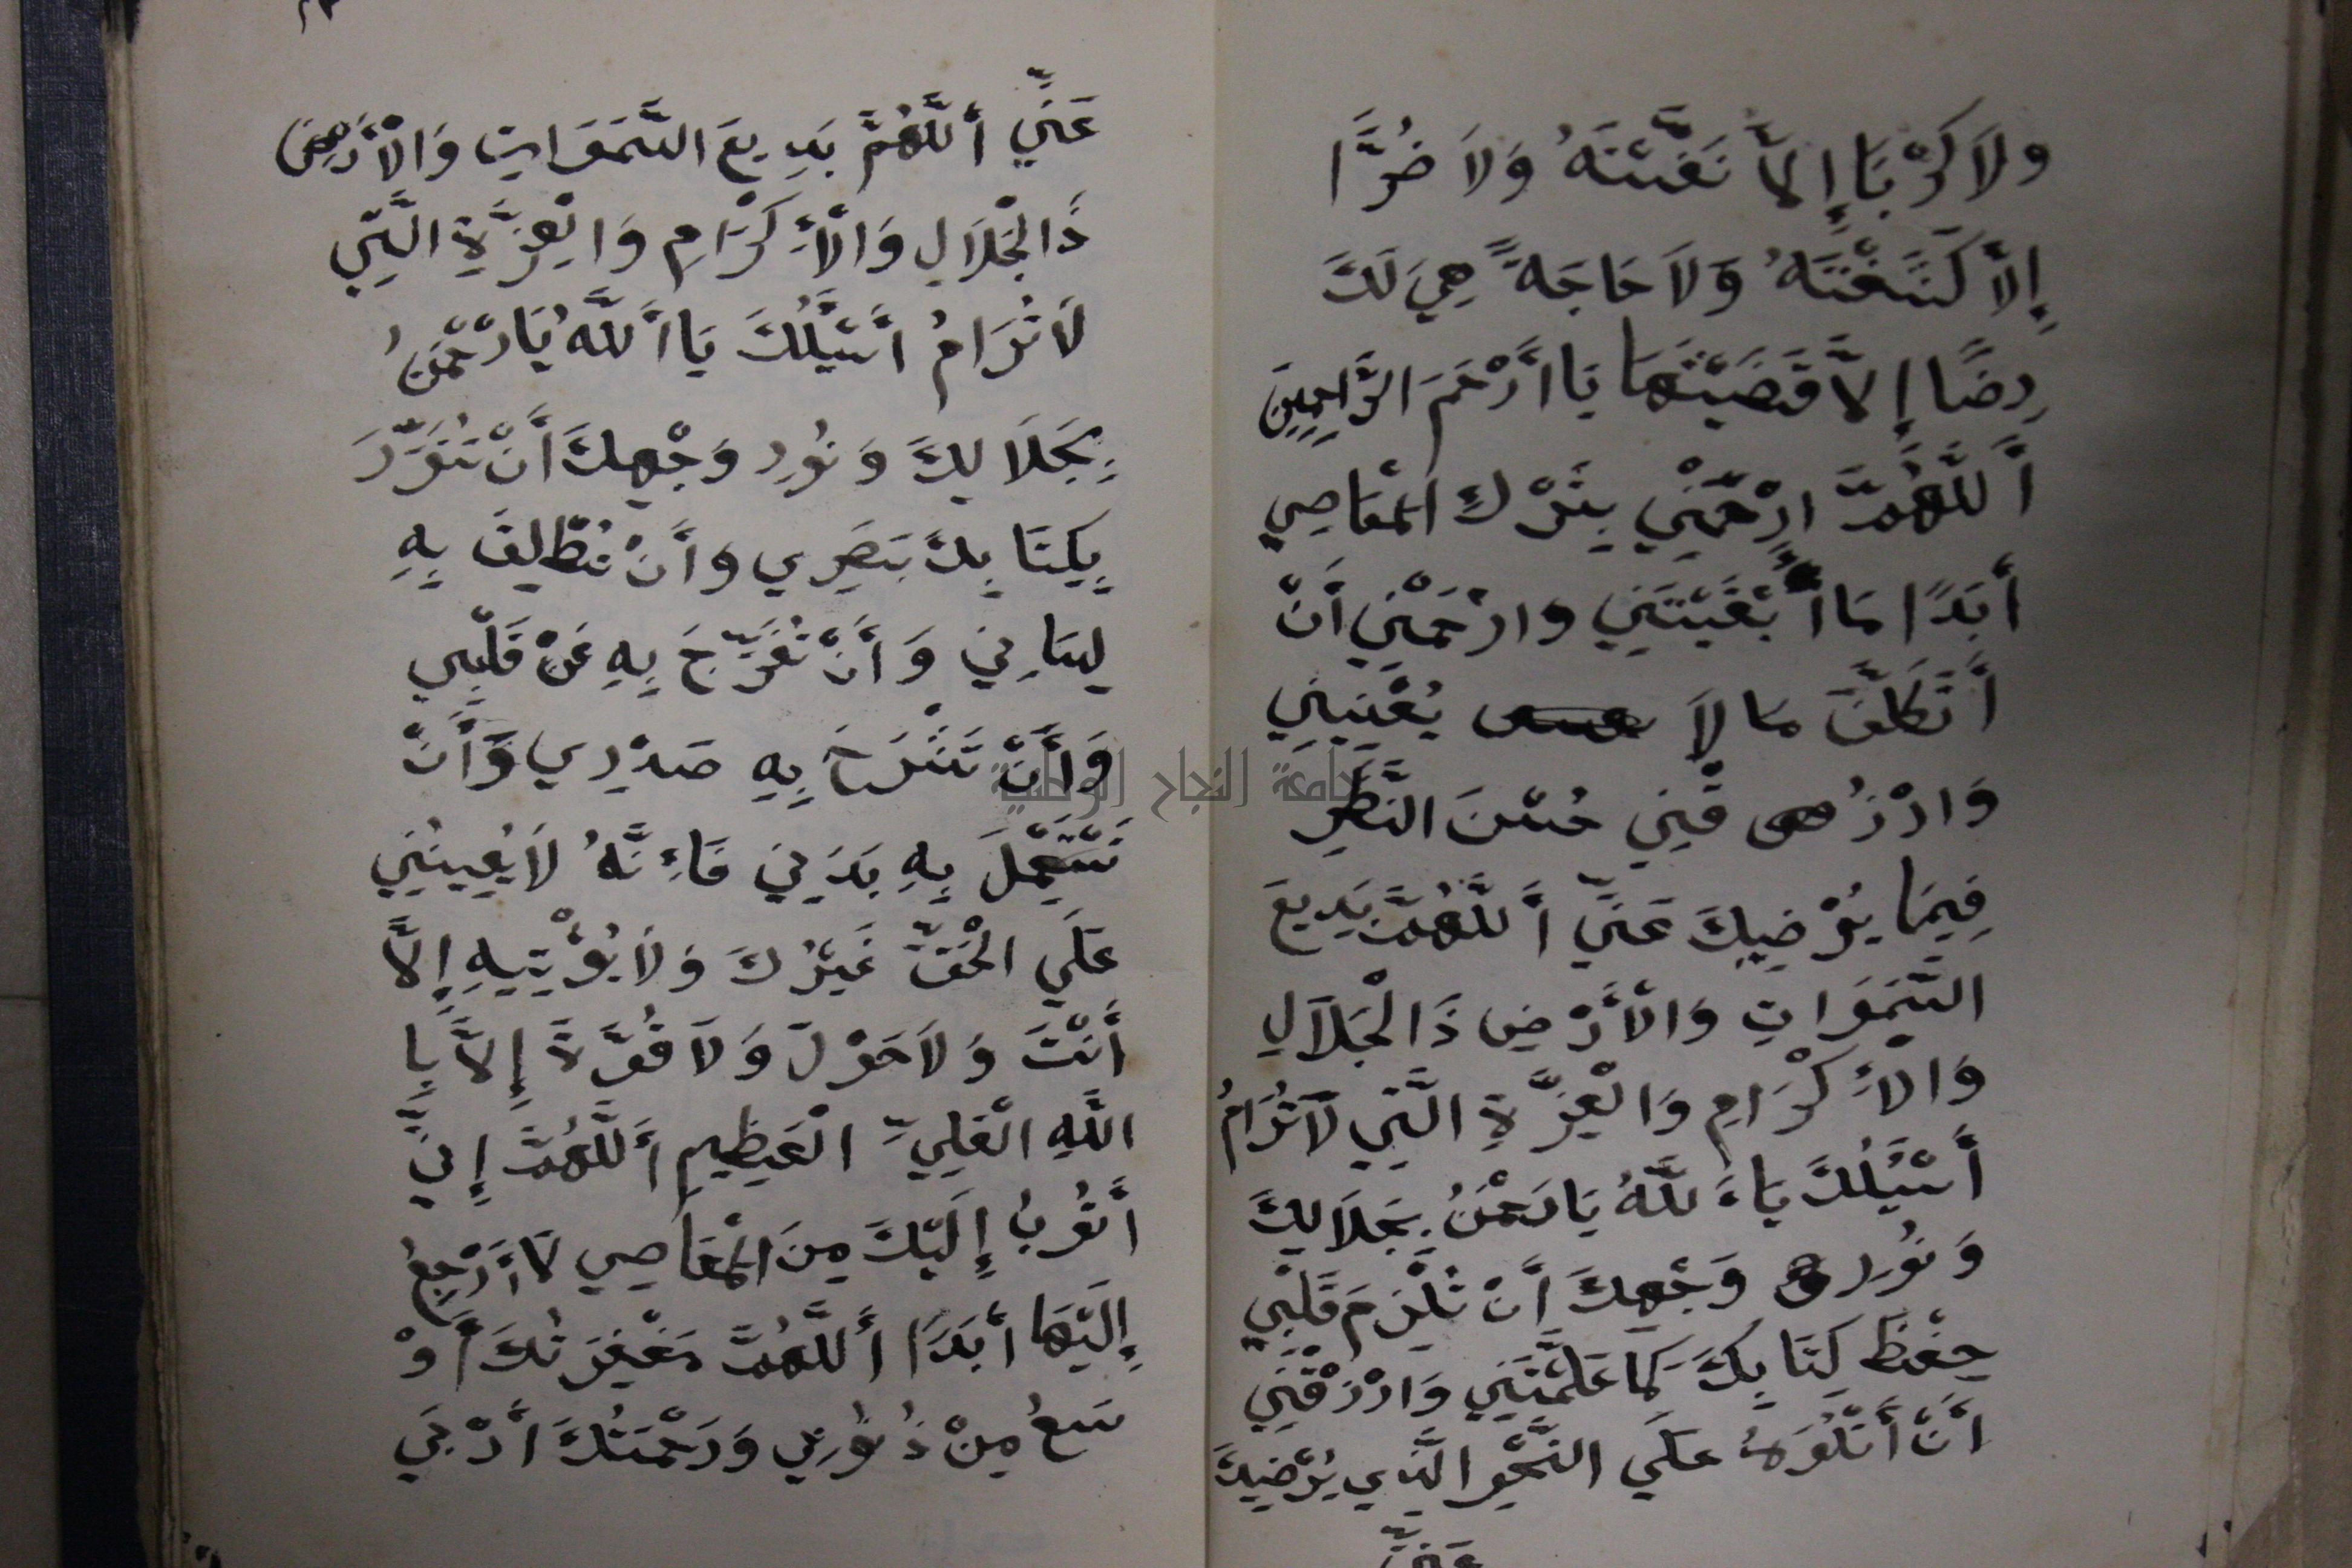 ولَا كَرْبًا إِلَّا نَفَّسْتَهُ وَلَا ضُرًّا
إِلَّا كَشَفْتَهُ وَلَا حَاجَةً هِيَ لَكَ
رِضًا إِلَّا قَضَيْتَهَا يَا أَرْحَمَ الرَّاحِمِينَ
أَللَّهُمَّ ارْحَمْنِي بِتَرْكِ الْمَعَاصِي
أَبَدًا مَا أَبْقَيْتَنِي وَارْحَمْنِي أَنْ
أَتَكَلَّفَ مَا لَا يُعْنِينِي
وَارْزُقْنِي حُسْنَ النَّظَرِ
فِيمَا يُرْضِيكَ عَنِّي أَللَّهُمَّ بَدِيعَ
السَّمَوَاتِ وَالْأَرْضِ ذَا لْجَلَالِ
وَالْأِكْرَامِ وَالْعِزَّةِ الَّتِي لَا تُرَامُ
أَسْئَلُكَ يَاءَ للَّهُ يَا رَحْمَنُ بِجَلَالِكَ
وَنُورِ وَجْهِكَ أَنْ تُلْزِمَ قَلْبِي
حِفْظَ كِتَابِكَ كَمَا عَلَّمْتَنِي وَارْزُقْنِي
أَنْ أَتْلُوَهُ عَلَي النَّحْوِ الَّذِي يُرْضِيكَ
عَنِّي
عَنِّي أَللَّهُمَّ بَدِيعَ السَّمَوَاتِ وَالْأَرْضِ
ذَا لْجَلَالِ وَالْأِكْرَامِ وَالْعِزَّةِ الَّتِي
لَا تُرَامُ أَسْئَلُكَ يَا أَللَّهُ يَا رَحْمَنُ
بِجَلَالِكَ وَنُورِ وَجْهِكَ أَنْ تُنَوِّرَ
بِكِتَابِكَ بَصَرِي وَأَنْ تُطْلِقَ بِهِ
لِسَانِي وَأَنْ تُفَرِّجَ بِهِ عَنْ قَلْبِي
وَأَنْ تَشْرَحَ بِهِ صَدْرِي وَأَنْ
بِهِ بَدَنِي فَاءِنَّهُ لَا يُعِينُنِي
عَلَي الْحَقِّ غَيْرُكَ وَلَا يُؤْتِيهِ إِلَّا
أَنْتَ وَلَا حَوْلَ وَلَا قُوَّةَ إِلَّا بِا
اللَّهِ الْعَلِيِّ الْعَظِيمِ أَللَّهُمَّ إِنِّي
أَتُوبُ إِلَيْكَ مِنَ الْمَعَاصِي لَا أَرْجِعُ
إِلَيْهَا أَبَدًا أَللَّهُمَّ مَغْفِرَتُكَ أَوْ
سَعُ مِنْ ذُنُوبِي وَرَحْمَتُكَ أَرْجَي
جامعة النجاح الوطنية